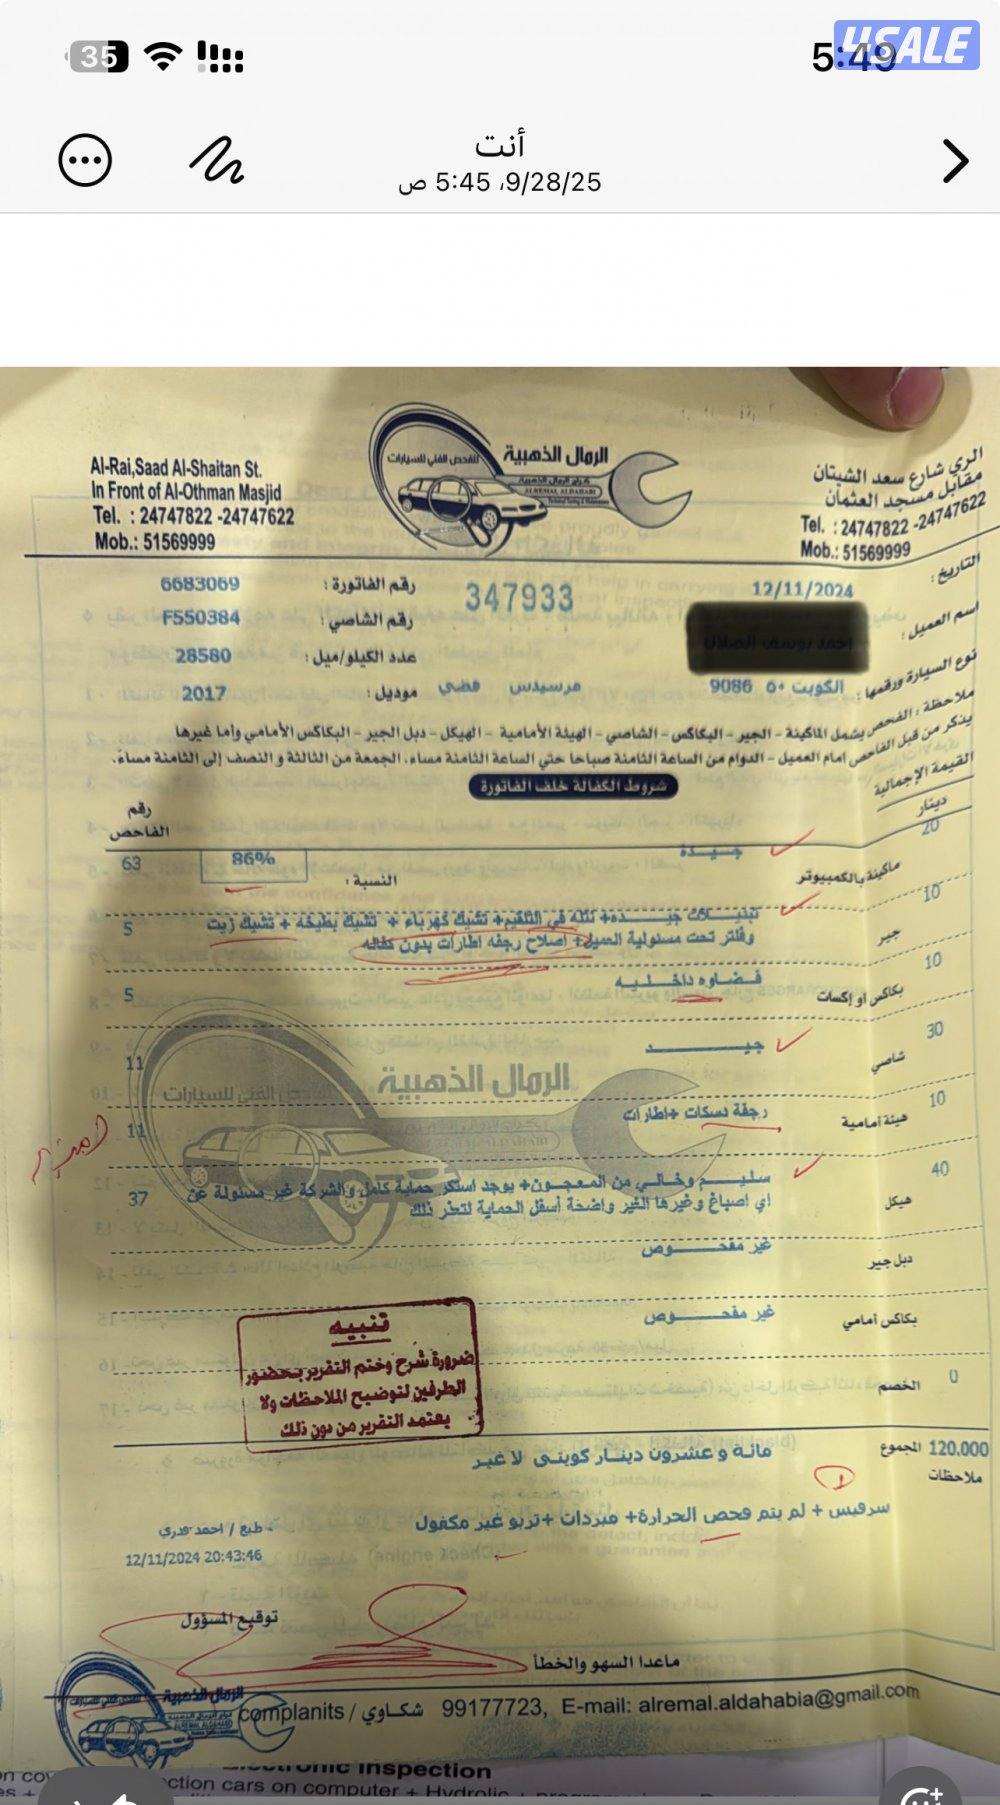 35
5:49
4SALE
أنت
9/28/25، 5:45 ص
Al-Rai,Saad Al-Shaitan St.
In Front of Al-Othman Masjid
Tel. : 24747822 -24747622
Mob.: 51569999
للفحص الفني للسيارات
الرمال الذهبية
ALREMAL ALDAHABI
الري شارع سعد الشيتان
مقابل مسجد العثمان
Tel. : 24747822 -24747622
Mob.: 51569999
التاريخ: 12/11/2024
347933
رقم الفاتورة: 6683069
اسم العميل: احمد يوسف الصلال
رقم الشاصي: F550384
عدد الكيلو/ميل: 28580
نوع السيارة ورقمها: الكويت ٥٠ 9086 مرسيدس فضي
موديل: 2017
ملاحظة: الفحص يشمل الماكينة - الجير - البكاكس - الشاصي - الهيئة الأمامية - الهيكل - دبل الجير - البكاكس الأمامي وأما غيرها
يذكر من قبل الفاحص امام العميل - الدوام من الساعة الثامنة صباحا حتي الساعة الثامنة مساء، الجمعة من الثالثة و النصف إلى الثامنة مساءً.
شروط الكفالة خلف الفاتورة
القيمة الإجمالية
دينار
رقم الفاحص
20 ماكينة بالكمبيوتر جيدة النسبة: 86% 63
10 جير تبديلات جيده+ نتله في التلقيم+ تشيك كهرباء + تشيك بطيخه + تشيك زيت 5
وفلتر تحت مسئولية العميل+ اصلاح رجفه اطارات بدون كفاله
10 بكاكس او إكسات قضاوه داخليه 5
30 شاصي جيد 11
10 هيئة أمامية رجفة دسكات +اطارات 11
40 هيكل سليم وخالي من المعجون+ يوجد استكر حماية كامل والشركة غير مسئولة عن 37
اي اصباغ وغيرها الغير واضحة أسفل الحماية لتعذر ذلك
دبل جير غير مفحوص
بكاكس أمامي غير مفحوص
الرمال الذهبية
للفحص الفني للسيارات
تنبيه
ضرورة شرح وختم التقرير بحضور
الطرفين لتوضيح الملاحظات ولا
يعتمد التقرير من دون ذلك
0 الخصم
120.000 المجموع مائة و عشرون دينار كويتى لا غير
ملاحظات
سرفيس + لم يتم فحص الحرارة+ مبردات +تربو غير مكفول
طبع / احمد قدري
12/11/2024 20:43:46
توقيع المسؤول
ماعدا السهو والخطأ
complanits / شكاوي 99177723, E-mail: alremal.aldahabia@gmail.com
الرمال الذهبية
Inspection
ction cars on computer + Hydrolic +